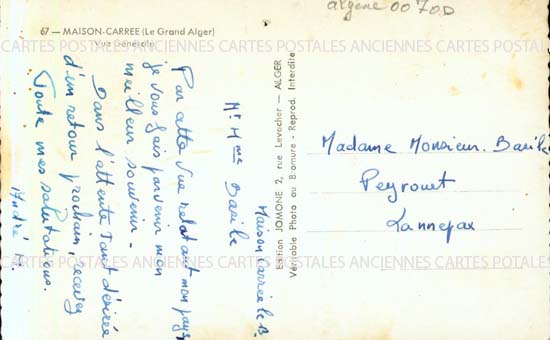 algerie 00700
67 — MAISON-CARREE (Le Grand Alger)
Vue Générale
CARTES POSTALES ANCIENNES CARTES POSTALES ANCIENNES CARTES POSTALES
Maison Carrée le 13
Mr Mme Barile
Par cette vue relatant mon pays
je vous fais parvenir mon
meilleur souvenir -
Dans l'attente tant désirée
d'un retour prochain, recevez
Toute mes salutations.
André
Edition JOMONE 2, rue Levacher — ALGER
Véritable Photo au Bromure - Reprod. Interdite
Madame Monsieur. Barile
Peyrouet
Lannepax
CARTES POSTALES ANCIENNES CARTES POSTALES ANCIENNES CARTES POSTALES